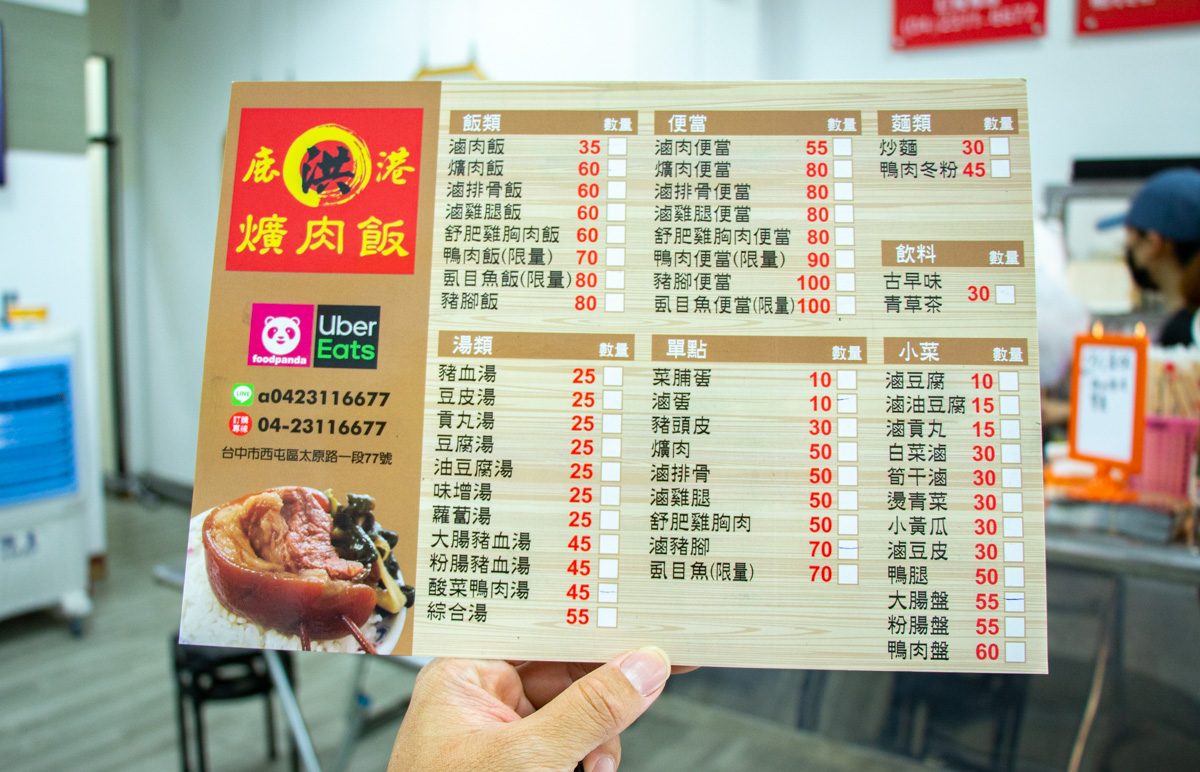 鹿洪港
爌肉飯
foodpanda
Uber
Eats
LINE a0423116677
訂購專線 04-23116677
台中市西屯區太原路一段77號
飯類 數量
滷肉飯 35
爌肉飯 60
滷排骨飯 60
滷雞腿飯 60
舒肥雞胸肉飯 60
鴨肉飯(限量) 70
虱目魚飯(限量) 80
豬腳飯 80
湯類 數量
豬血湯 25
豆皮湯 25
貢丸湯 25
豆腐湯 25
油豆腐湯 25
味增湯 25
蘿蔔湯 25
大腸豬血湯 45
粉腸豬血湯 45
酸菜鴨肉湯 45
綜合湯 55
便當 數量
滷肉便當 55
爌肉便當 80
滷排骨便當 80
滷雞腿便當 80
舒肥雞胸肉便當 80
鴨肉便當(限量) 90
豬腳便當 100
虱目魚便當(限量) 100
單點 數量
菜脯蛋 10
滷蛋 10
豬頭皮 30
爌肉 50
滷排骨 50
滷雞腿 50
舒肥雞胸肉 50
滷豬腳 70
虱目魚(限量) 70
麵類 數量
炒麵 30
鴨肉冬粉 45
飲料 數量
古早味
青草茶 30
小菜 數量
滷豆腐 10
滷油豆腐 15
滷貢丸 15
白菜滷 30
筍干滷 30
燙青菜 30
小黃瓜 30
滷豆皮 30
鴨腿 50
大腸盤 55
粉腸盤 55
鴨肉盤 60